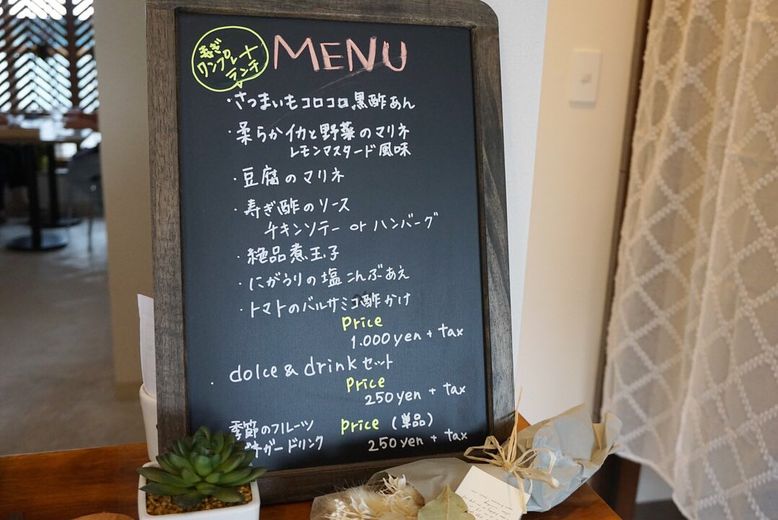 寿ぎ
ワンプレート
ランチ
MENU
・さつまいもコロコロ黒酢あん
・柔らかイカと野菜のマリネ
レモンマスタード風味
・豆腐のマリネ
・寿ぎ酢のソース
チキンソテー or ハンバーグ
・絶品煮玉子
・にがうりの塩こんぶあえ
・トマトのバルサミコ酢かけ
Price
1.000yen + tax
・dolce & drinkセット
Price
250yen + tax
季節のフルーツ Price (単品)
ビネガードリンク 250yen + tax